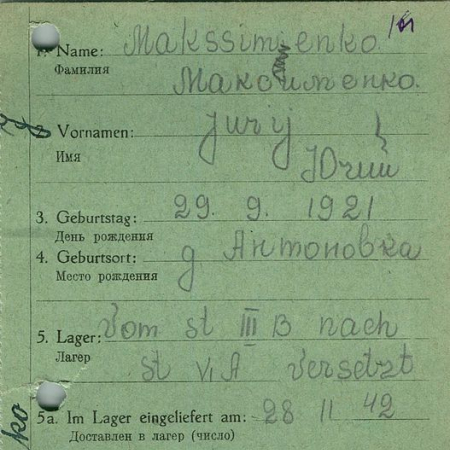 1. Name: Makssimenko
Фамилия Максименко.
Vornamen: Jurij
Имя Юрий
3. Geburtstag: 29. 9. 1921
День рождения
4. Geburtsort: д Антоновка
Место рождения
5. Lager: Vom st III B nach
Лагер st VI A versetzt
5a. Im Lager eingeliefert am: 28 11 42
Доставлен в лагер (число)
ko